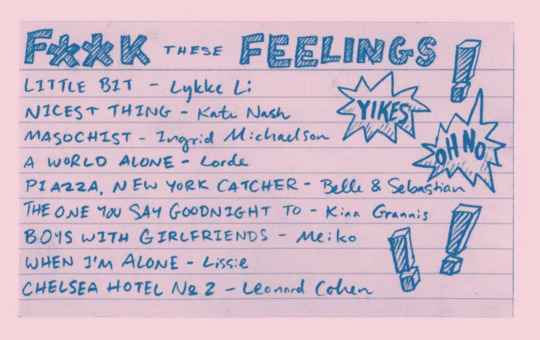 F**K THESE FEELINGS
LITTLE BIT - Lykke Li
NICEST THING - Kate Nash
YIKES
MASOCHIST - Ingrid Michaelson
OH NO
A WORLD ALONE - Lorde
PIAZZA, NEW YORK CATCHER - Belle & Sebastian
THE ONE YOU SAY GOODNIGHT TO - Kina Grannis
BOYS WITH GIRLFRIENDS - Meiko
WHEN I'M ALONE - Lissie
CHELSEA HOTEL No 2 - Leonard Cohen